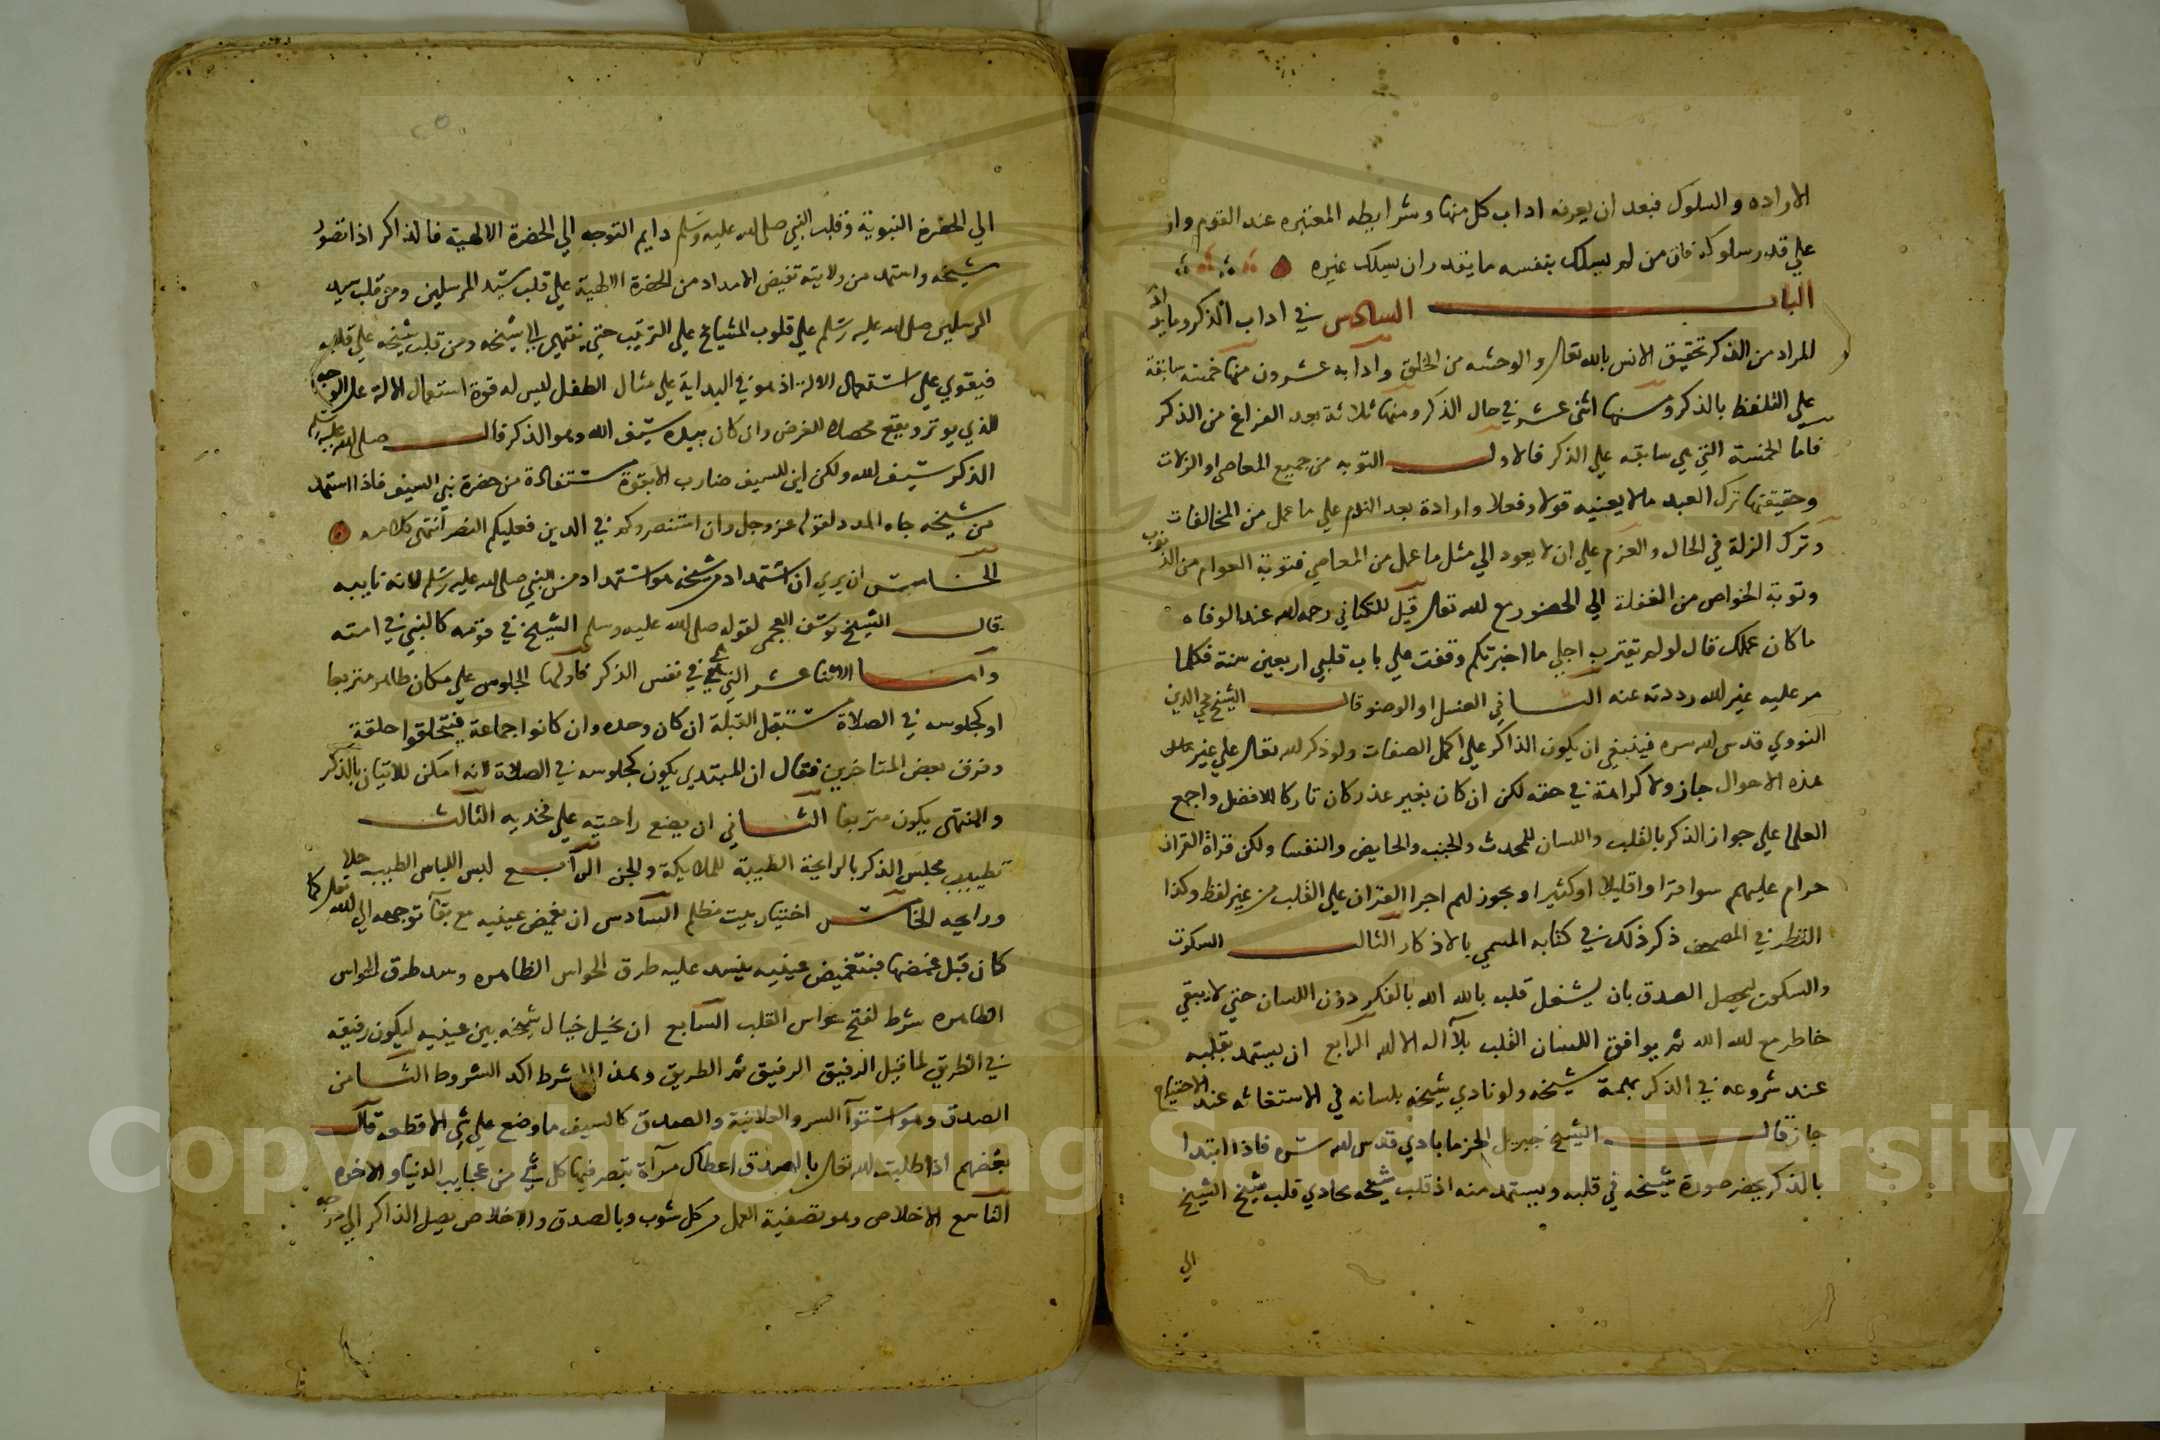 الاراده والسلوك فبعد ان يعرف اداب كل منها وشرايطه المعتبره عند القوم واز
علي قدر سلوكه فان من لم يسلك بنفسه ما يقدر ان يسلك غيره
الباب السادس في اداب الذكر وما
المراد من الذكر تحقيق الانس بالله تعالى والوحشه من الخلق وادابه عشرون منها خمسة سابقة
علي التلفظ بالذكر ومنها اثنى عشر في حال الذكر ومنها ثلاثة بعد الفراغ من الذكر
فاما الخمسة التي هي سابقه علي الذكر فالاول التوبه من جميع المعاصي او الزلات
وحقيقتها ترك العبد ما لا يعنيه قولا وفعلا وارادة بعد الندم علي ما عمل من المخالفات
وترك الزلة في الحال والعزم علي ان لا يعود الي مثل ما عمل من المعاصي فتوبة العوام من الذنوب
وتوبة الخواص من الغفلة الي الحضور مع الله تعالى قيل للكتاني رحمه الله عند الوفاه
ما كان عملك قال لو لم يقترب اجلي ما اخبرتكم وقفت علي باب قلبي اربعين سنة فكلما
مر عليه غير الله رددته عنه الثاني الغسل او الوضو قال الشيخ محي الدين
النووي قدس الله سره فينبغي ان يكون الذاكر علي اكمل الصفات ولو ذكر الله تعالى علي غير
هذه الاحوال جاز ولا كراهة في حقه لكن ان كان بغير عذر كان تاركا للافضل واجمع
العلما علي جواز الذكر بالقلب واللسان للمحدث والجنب والحايض والنفسا ولكن قراة القران
حرام عليهم سوا قرا واقليلا او كثيرا ويجوز لهم اجرا القران علي القلب من غير لفظ وكذا
النظر في المصحف ذكر ذلك في كتابه المسمي بالاذكار الثالث السكوت
والسكون ليحصل الصدق بان يشغل قلبه بالله الله بالفكر دون اللسان حتي لا يبقي
خاطر مع الله الله ثم يوافق اللسان القلب بلا اله الا الله الرابع ان يستمد بقلبه
عند شروعه في الذكر بهمة شيخه ولو نادي شيخه بلسانه في الاستغاثه عند الاحتياج
جاز قال الشيخ جبريل الخرمابادي قدس الله سره فاذا ابتدا
بالذكر يحضر صورة شيخه في قلبه ويستمد منه اذ قلب شيخه يحادي قلب شيخ الشيخ
الي
الي الحضرة النبوية وقلب النبي صلى الله عليه وسلم دايم التوجه الي الحضرة الالهية فالذاكر اذا تصور
شيخه واستمد من ولايته تفيض الامداد من الحضرة الالهية علي قلب سيد المرسلين ومن قلب سيد
المرسلين صلى الله عليه وسلم علي قلوب المشايخ علي الترتيب حتي ينتهي الي شيخه ومن قلب شيخه علي قلبه
فيقوي علي استعمال الالة اذ هو في البداية علي مثال الطفل ليس له قوة استعمال الالة على الوجه
الذي يوتر ويقع محصلا للغرض وان كان بيده سيف الله وهو الذكر قال صلى الله عليه وسلم
الذكر سيف الله ولكن اين للسيف ضارب الا بقوة مستفادة من حضرة نبي السيف فاذا استمد
من شيخه جاه المدد لقوله عز وجل وان استنصروكم في الدين فعليكم النصر انتهى كلامه
الخامس ان يري ان استمداده من شيخه هو استمداد من النبي صلى الله عليه وسلم لانه نايبه
قال الشيخ يوسف العجمي لقوله صلى الله عليه وسلم الشيخ في قومه كالنبي في امته
واما الاثنا عشر التي هي في نفس الذكر فاولها الجلوس علي مكان طاهر متربعا
او كجلوسه في الصلاة مستقبل القبلة ان كان وحده وان كانوا جماعة فيتحلقوا حلقة
وفرق بعض المتاخرين فقال ان المبتدي يكون كجلوسه في الصلاة لانه امكن للاتيان بالذكر
والمنتهى يكون متربعا الثاني ان يضع راحتيه علي فخذيه الثالث
تطييب مجلس الذكر بالرايحة الطيبة للملايكة والجن الرابع لبس اللباس الطيب حلا
ورايحه الخامس اختيار بيت مظلم السادس ان يغمض عينيه مع بقا توجهه الي الله تعالى كما
كان قبل غمضها فبتغميض عينيه ينسد عليه طرق الحواس الظاهره وسد طرق الحواس
الظاهره شرط لفتح حواس القلب السابع ان يخيل خيال شيخه بين عينيه ليكون رفيقه
في الطريق لما قيل الرفيق الرفيق ثم الطريق وهذا الشرط اكد الشروط الثامن
الصدق وهو استوا السر والعلانية والصدق كالسيف ما وضع علي شي الا قطعه قال
بعضهم اذا طلبت الله تعالى بالصدق اعطاك مرآة تبصر فيها كل شي من عجايب الدنيا والاخره
التاسع الاخلاص وهو تصفية العمل من كل شوب وبالصدق والاخلاص يصل الذاكر الي درجه
Copyright © King Saud University